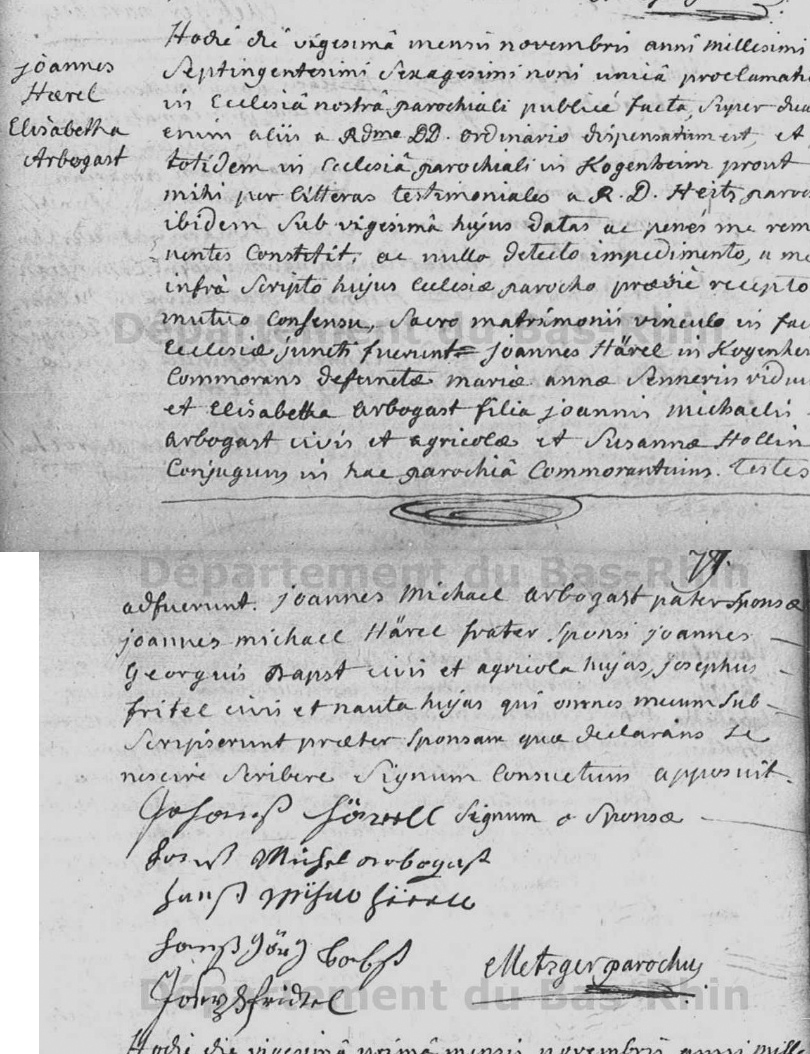 joannes
Hærel
Elisabetha
Arbogast
Hodie die vigesimâ mensis novembris anni millesimi
Septingentesimi Sexagesimi noni unicâ proclamatio
in Ecclesiâ nostrâ parochiali publicé facta, super dua
enim aliis a Rdmo DD. ordinario dispensatum est, et
totidem in Ecclesiâ parochiali in Kogenheim prout
mihi per litteras testimoniales a R. D. Heitz paroc
ibidem sub vigesimâ hujus datas ac penes me rem
nentes Constitit, ac nullo detecto impedimento, a me
infrà Scripto hujus Ecclesiæ parocho prævie recepto
mutuo Consensu, Sacro matrimonii vinculo in fac
Ecclesiæ juncti fuerunt joannes Härel in Kogenhei
Commorans defunctæ mariæ annæ Sennerin vidu
et Elisabetha Arbogast filia joannis michaelis
Arbogast civis et agricolæ et Susannæ Hollin
Conjugum in hac parochiâ Commorantium. Testes
Département du Bas-Rhin
79.
adfuerunt. joannes Michael Arbogast pater Sponsæ
joannes michael Härel frater Sponsi joannes
Georgius Bapst civis et agricola hujas, josephus
fritel civis et nauta hujas qui omnes mecum Sub-
Scripserunt præter Sponsam quæ declarans Se
nescire Scribere Signum Consuetum apposuit.
Signum o Sponsæ
Michel arbogast
Metzger parochus
Département du Bas-Rhin
Hodie die vigesimâ primâ mensis novembris anni mill